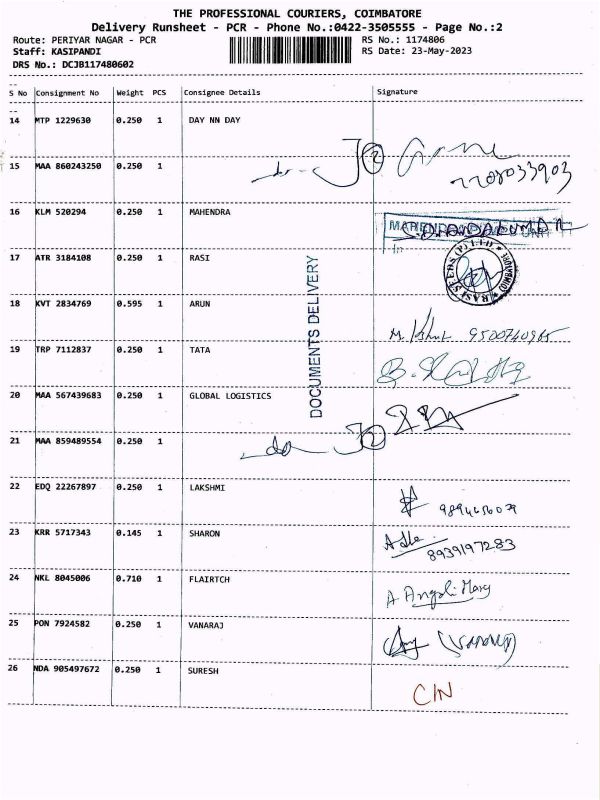 THE PROFESSIONAL COURIERS, COIMBATORE
Delivery Runsheet - PCR - Phone No.:0422-3505555 - Page No.:2
Route: PERIYAR NAGAR - PCR RS No.: 1174806
Staff: KASIPANDI RS Date: 23-May-2023
DRS No.: DCJB117480602
S No Consignment No Weight PCS Consignee Details Signature
14 MTP 1229630 0.250 1 DAY NN DAY
15 MAA 860243250 0.250 1
16 KLM 520294 0.250 1 MAHENDRA
17 ATR 3184108 0.250 1 RASI
RASI SEEDS (P) LTD
DOCUMENTS DELIVERY
18 KVT 2834769 0.595 1 ARUN
9500740965
19 TRP 7112837 0.250 1 TATA
20 MAA 567439683 0.250 1 GLOBAL LOGISTICS
21 MAA 859489554 0.250 1
22 EDQ 22267897 0.250 1 LAKSHMI
23 KRR 5717343 0.145 1 SHARON
8939197283
24 NKL 8045006 0.710 1 FLAIRTCH
A Angeli Mary
25 PON 7924582 0.250 1 VANARAJ
26 NDA 905497672 0.250 1 SURESH
C/N